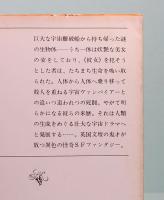 巨大な宇宙難破船から持ち帰った謎
の生物体――うち一体は妖艶な美女
の姿をしており、〈彼女〉を犯そう
とした者は、たちまち生命を吸い取
られた。人体から人体へ乗り移って
殺人を重ねる宇宙ヴァンパイアーと
の追いつ追われつの死闘。やがて明
らかになる彼らの来歴。それは人類
の生成をめぐる壮大な宇宙ドラマへ
と発展する――。英国文壇の鬼才が
放つ異色の怪奇SFファンタジー。